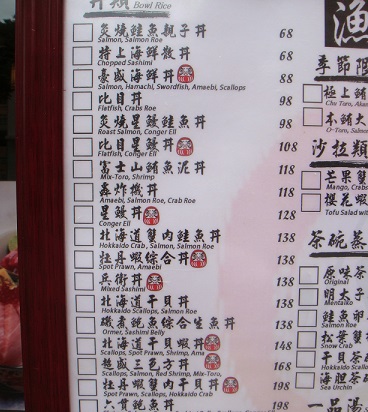 丼類 Bowl Rice
炙燒鮭魚親子丼 68
Salmon, Salmon Roe
特上海鮮散丼 68
Chopped Sashimi
豪盛海鮮丼 88
Salmon, Hamachi, Swordfish, Amaebi, Scallops
比目丼 98
Flatfish, Crabs Roe
炙燒星鰻鮭魚丼 98
Roast Salmon, Conger Ell
比目星鰻丼 108
Flatfish, Conger Ell
富士山鮪魚泥丼 118
Mix-Toro, Shrimp
轟炸機丼 118
Amaebi, Salmon Roe, Crab Roe
星鰻丼 128
Conger Ell
北海道蟹肉鮭魚丼 138
Hokkaido Crab, Salmon, Salmon Roe
牡丹蝦綜合丼 138
Spot Prawn, Amaebi
兵衛丼 138
Mixed Sashimi
北海道干貝丼 138
Hokkaido Scallops, Salmon Roe
磯煮鮑魚綜合生魚丼 138
Ormer, Sashimi Belly
北海道干貝蝦丼 148
Scallops, Spot Prawn, Shrimp, Ama
超盛三色方丼 168
Scallops, Salmon, Red Shrimp, Mix-Toro,
牡丹蝦蟹肉干貝丼 148
Spot Prawn, Hokkaido Crab, Scallops
六貫鮑魚丼
漁
季節限
極上鮪
Chu Toro, Akam
本鮪大
O-Toro, Salmon
沙拉類
芒果蟹
Mango, Crabs
櫻花蝦
Tofu Salad with
茶碗蒸
原味茶
Original
明太子
Mentaiko
鮭魚卵
Salmon Roe
松葉蟹
Snow Crab
干貝茶
Hokkaido Scall
海胆茶
Sea Urchin
一品湯